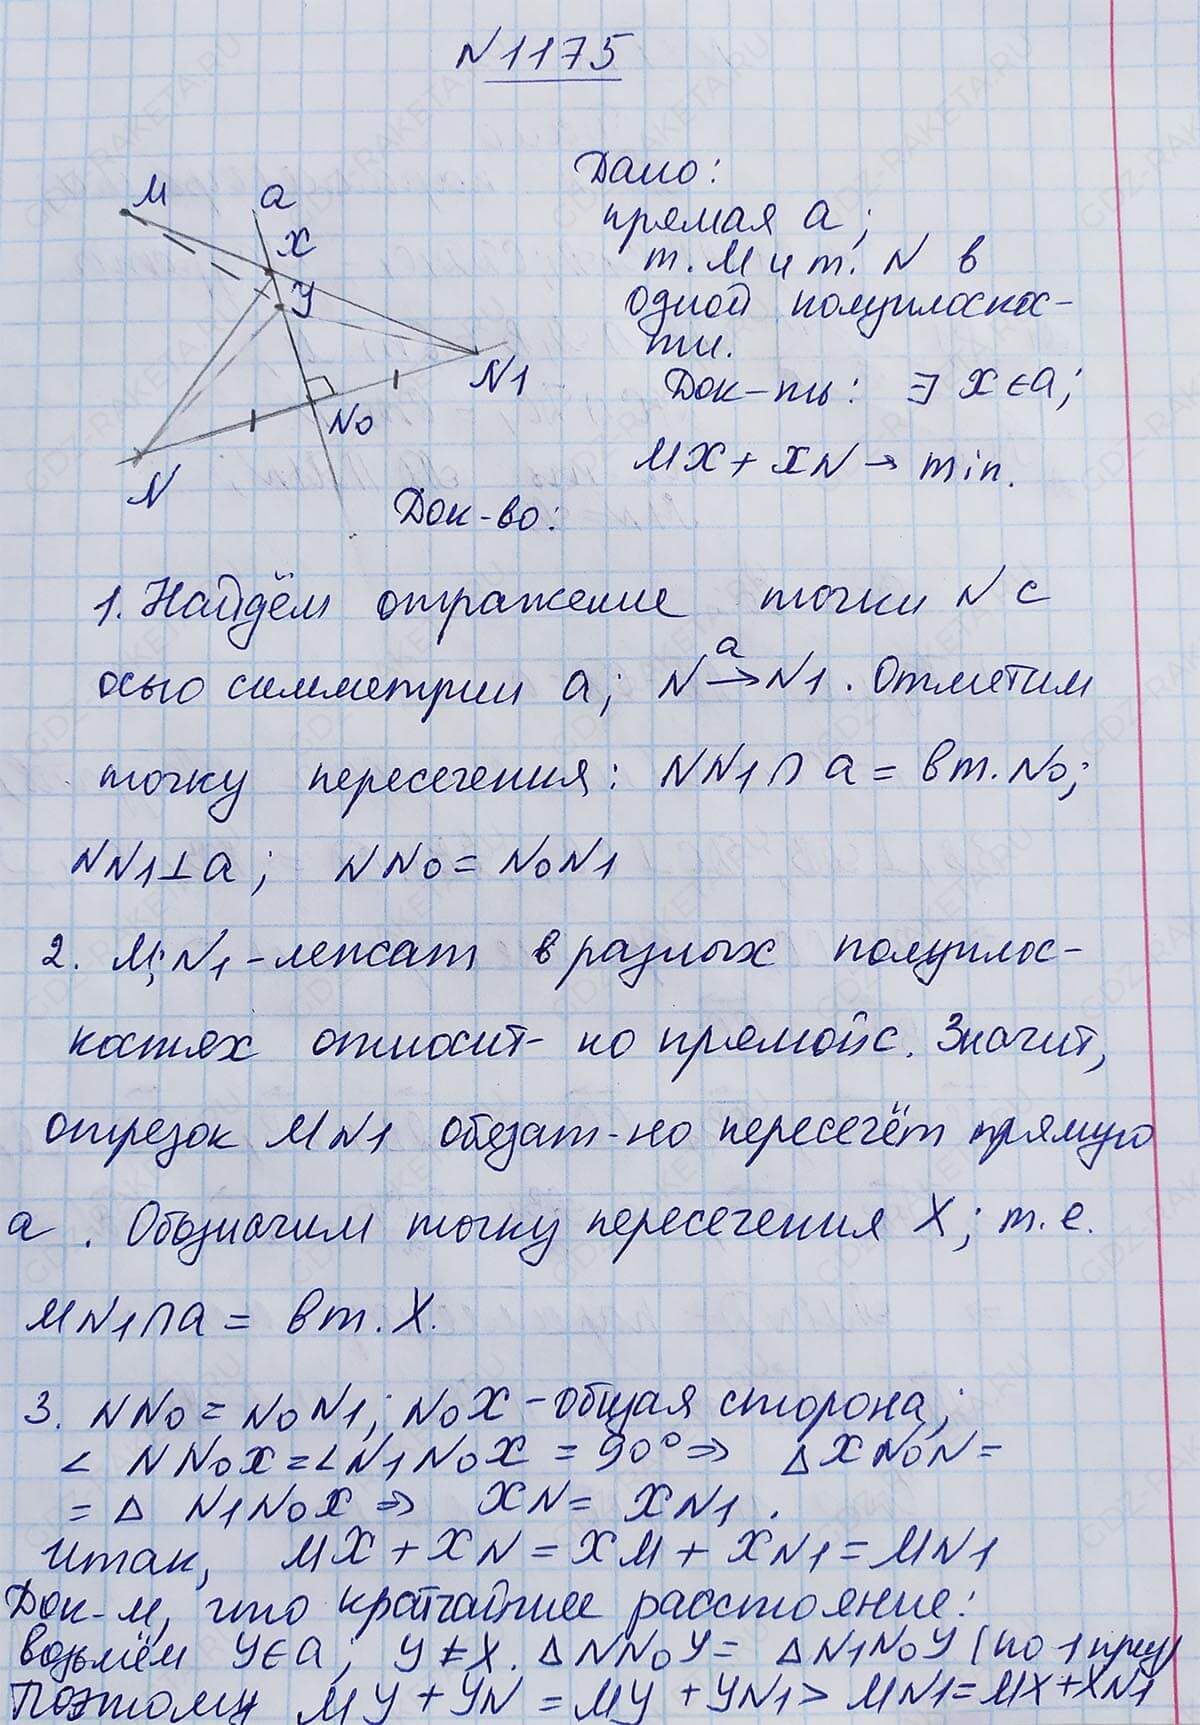 N1175
Дано:
прямая a;
т. М и т. N в
одной полуплоскос-
ти.
Док-ть: ∃ X∈a;
MX + XN → min.
M
a
X
Y
N1
N0
N
Док-во:
1. Найдём отражение точки N с
осью симметрии a; N →a N1. Отметим
точку пересечения: NN1∩a = в т. N0;
NN1⊥a; NN0 = N0N1
2. M; N1 - лежат в разных полуплос-
костях относит-но прямой с. Значит,
отрезок MN1 обязат-но пересечёт прямую
a. Обозначим точку пересечения X; т.е.
MN1∩a = в т. X.
3. NN0 = N0N1; N0X - общая сторона;
∠ NN0X = ∠N1N0X = 90° ⇒ △XN0N =
= △ N1N0X ⇒ XN = XN1.
Итак, MX + XN = XM + XN1 = MN1
Док-м, что кратчайшее расстояние:
возьмём Y∈a; Y≠X. △NN0Y = △N1N0Y (по 1 приз)
Поэтому MY + YN = MY + YN1 > MN1 = MX + XN1
GDZ-RAKETA.RU